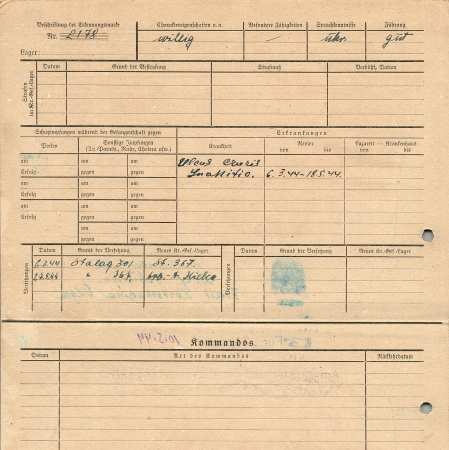 Beschriftung der Erkennungsmarke
Nr. 2178
Lager:
Charaktereigenschaften u. a.
willig
Besondere Fähigkeiten
Sprachkenntnisse
ukr.
Führung
gut
Strafen im Kr.-Gef.-Lager
Datum Grund der Bestrafung Strafmaß Verbüßt, Datum
Schutzimpfungen während der Gefangenschaft gegen
Erkrankungen
Pocken
Sonstige Impfungen
(Ty.-Paraty., Ruhr, Cholera usw.)
Krankheit
Revier
von bis
Lazarett — Krankenhaus
von bis
am am am
Erfolg gegen gegen
am am am
Erfolg gegen gegen
am am am
Erfolg gegen gegen
am am
gegen gegen
Ulcus Cruris
6.3.44-18.5.44.
Versetzungen
Datum Grund der Versetzung Neues Kr.-Gef.-Lager
Stalag 301 St. 367.
" 367
Versetzungen
Datum Grund der Versetzung Neues Kr.-Gef.-Lager
Kommandos
Datum Art des Kommandos Rückkehrdatum